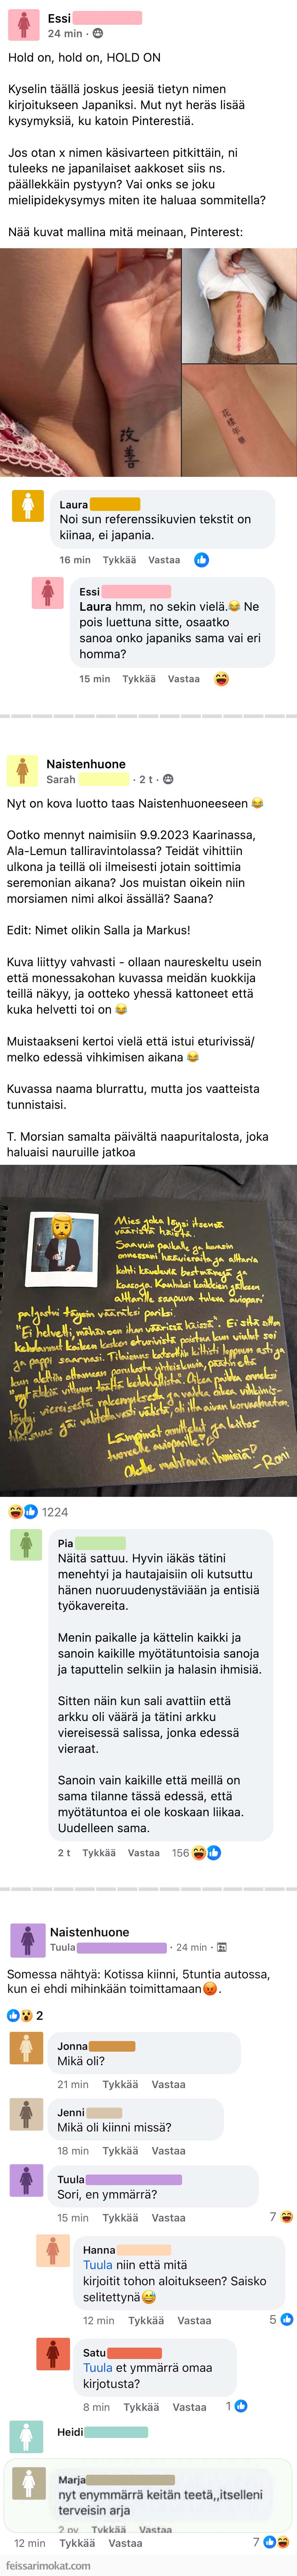 Essi
24 min ·
Hold on, hold on, HOLD ON
Kyselin täällä joskus jeesiä tietyn nimen
kirjoitukseen Japaniksi. Mut nyt heräs lisää
kysymyksiä, ku katoin Pinterestiä.
Jos otan x nimen käsivarteen pitkittäin, ni
tuleeks ne japanilaiset aakkoset siis ns.
päällekkäin pystyyn? Vai onks se joku
mielipidekysymys miten ite haluaa sommitella?
Nää kuvat mallina mitä meinaan, Pinterest:
改
善
花
樣
年
華
Laura
Noi sun referenssikuvien tekstit on
kiinaa, ei japania.
16 min Tykkää Vastaa
Essi
Laura hmm, no sekin vielä.😂 Ne
pois luettuna sitte, osaatko
sanoa onko japaniks sama vai eri
homma?
15 min Tykkää Vastaa
Naistenhuone
Sarah · 2 t ·
Nyt on kova luotto taas Naistenhuoneeseen 😂
Ootko mennyt naimisiin 9.9.2023 Kaarinassa,
Ala-Lemun talliravintolassa? Teidät vihittiin
ulkona ja teillä oli ilmeisesti jotain soittimia
seremonian aikana? Jos muistan oikein niin
morsiamen nimi alkoi ässällä? Saana?
Edit: Nimet olikin Salla ja Markus!
Kuva liittyy vahvasti - ollaan naureskeltu usein
että monessakohan kuvassa meidän kuokkija
teillä näkyy, ja ootteko yhessä kattoneet että
kuka helvetti toi on 😂
Muistaakseni kertoi vielä että istui eturivissä/
melko edessä vihkimisen aikana 😂
Kuvassa naama blurrattu, mutta jos vaatteista
tunnistaisi.
T. Morsian samalta päivältä naapuritalosta, joka
haluaisi nauruille jatkoa
Mies joka löysi itsensä
vääristä häistä.
Saavuin paikalle ja
onnessani häävieraita ja alttaria
kohti kävelevää
alttarille saapuva tuleva aviopari
paljastui täysin vääräksi pariksi.
"Ei helvetti, mähän oon ihan väärissä häissä".
Lämpimät onnittelut ja kiitos
tuoreelle avioparille
Olette mahtavia ihmisiä
-Roni
1224
Pia
Näitä sattuu. Hyvin iäkäs tätini
menehtyi ja hautajaisiin oli kutsuttu
hänen nuoruudenystäviään ja entisiä
työkavereita.
Menin paikalle ja kättelin kaikki ja
sanoin kaikille myötätuntoisia sanoja
ja taputtelin selkiin ja halasin ihmisiä.
Sitten näin kun sali avattiin että
arkku oli väärä ja tätini arkku
viereisessä salissa, jonka edessä
vieraat.
Sanoin vain kaikille että meillä on
sama tilanne tässä edessä, että
myötätuntoa ei ole koskaan liikaa.
Uudelleen sama.
2 t Tykkää Vastaa 156
Naistenhuone
Tuula · 24 min ·
Somessa nähtyä: Kotissa kiinni, 5tuntia autossa,
kun ei ehdi mihinkään toimittamaan😡.
2
Jonna
Mikä oli?
21 min Tykkää Vastaa
Jenni
Mikä oli kiinni missä?
18 min Tykkää Vastaa
Tuula
Sori, en ymmärrä?
15 min Tykkää Vastaa 7
Hanna
Tuula niin että mitä
kirjoitit tohon aloitukseen? Saisko
selitettynä😅
12 min Tykkää Vastaa 5
Satu
Tuula et ymmärrä omaa
kirjotusta?
8 min Tykkää Vastaa 1
Heidi
Marja
nyt enymmärrä keitän teetä,,itselleni
terveisin arja
2 pv Tykkää Vastaa
12 min Tykkää Vastaa 7
feissarimokat.com